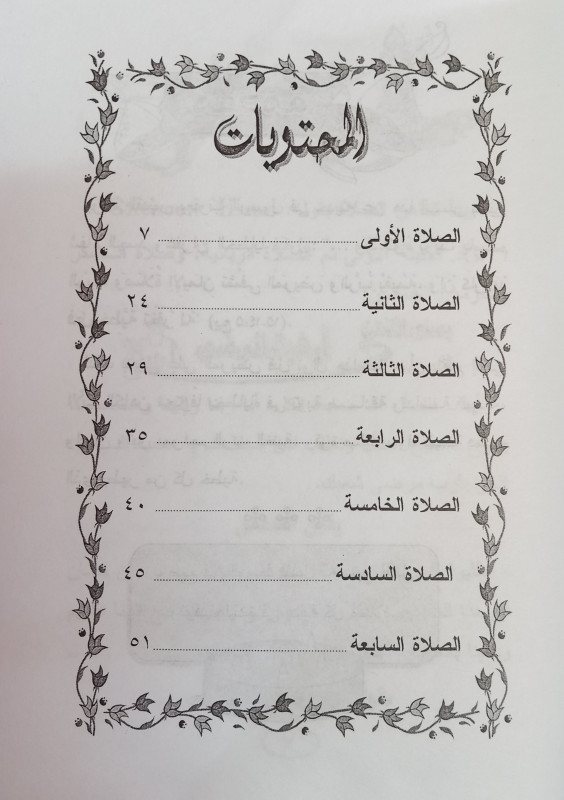 المحتويات
الصلاة الأولى ................ ٧
الصلاة الثانية ................ ٢٤
الصلاة الثالثة ................ ٢٩
الصلاة الرابعة ................ ٣٥
الصلاة الخامسة ................ ٤٠
الصلاة السادسة ................ ٤٥
الصلاة السابعة ................ ٥١